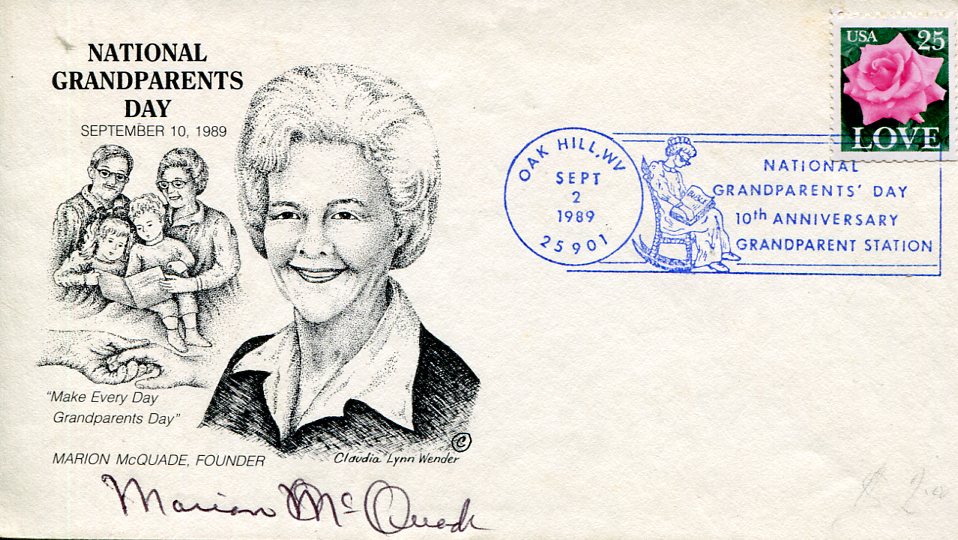 NATIONAL
GRANDPARENTS
DAY
SEPTEMBER 10, 1989
"Make Every Day
Grandparents Day"
MARION McQUADE, FOUNDER
©
Claudia Lynn Wender
Marion McQuade
USA 25
LOVE
OAK HILL, WV
SEPT
2
1989
25901
BIBLE
NATIONAL
GRANDPARENTS' DAY
10th ANNIVERSARY
GRANDPARENT STATION